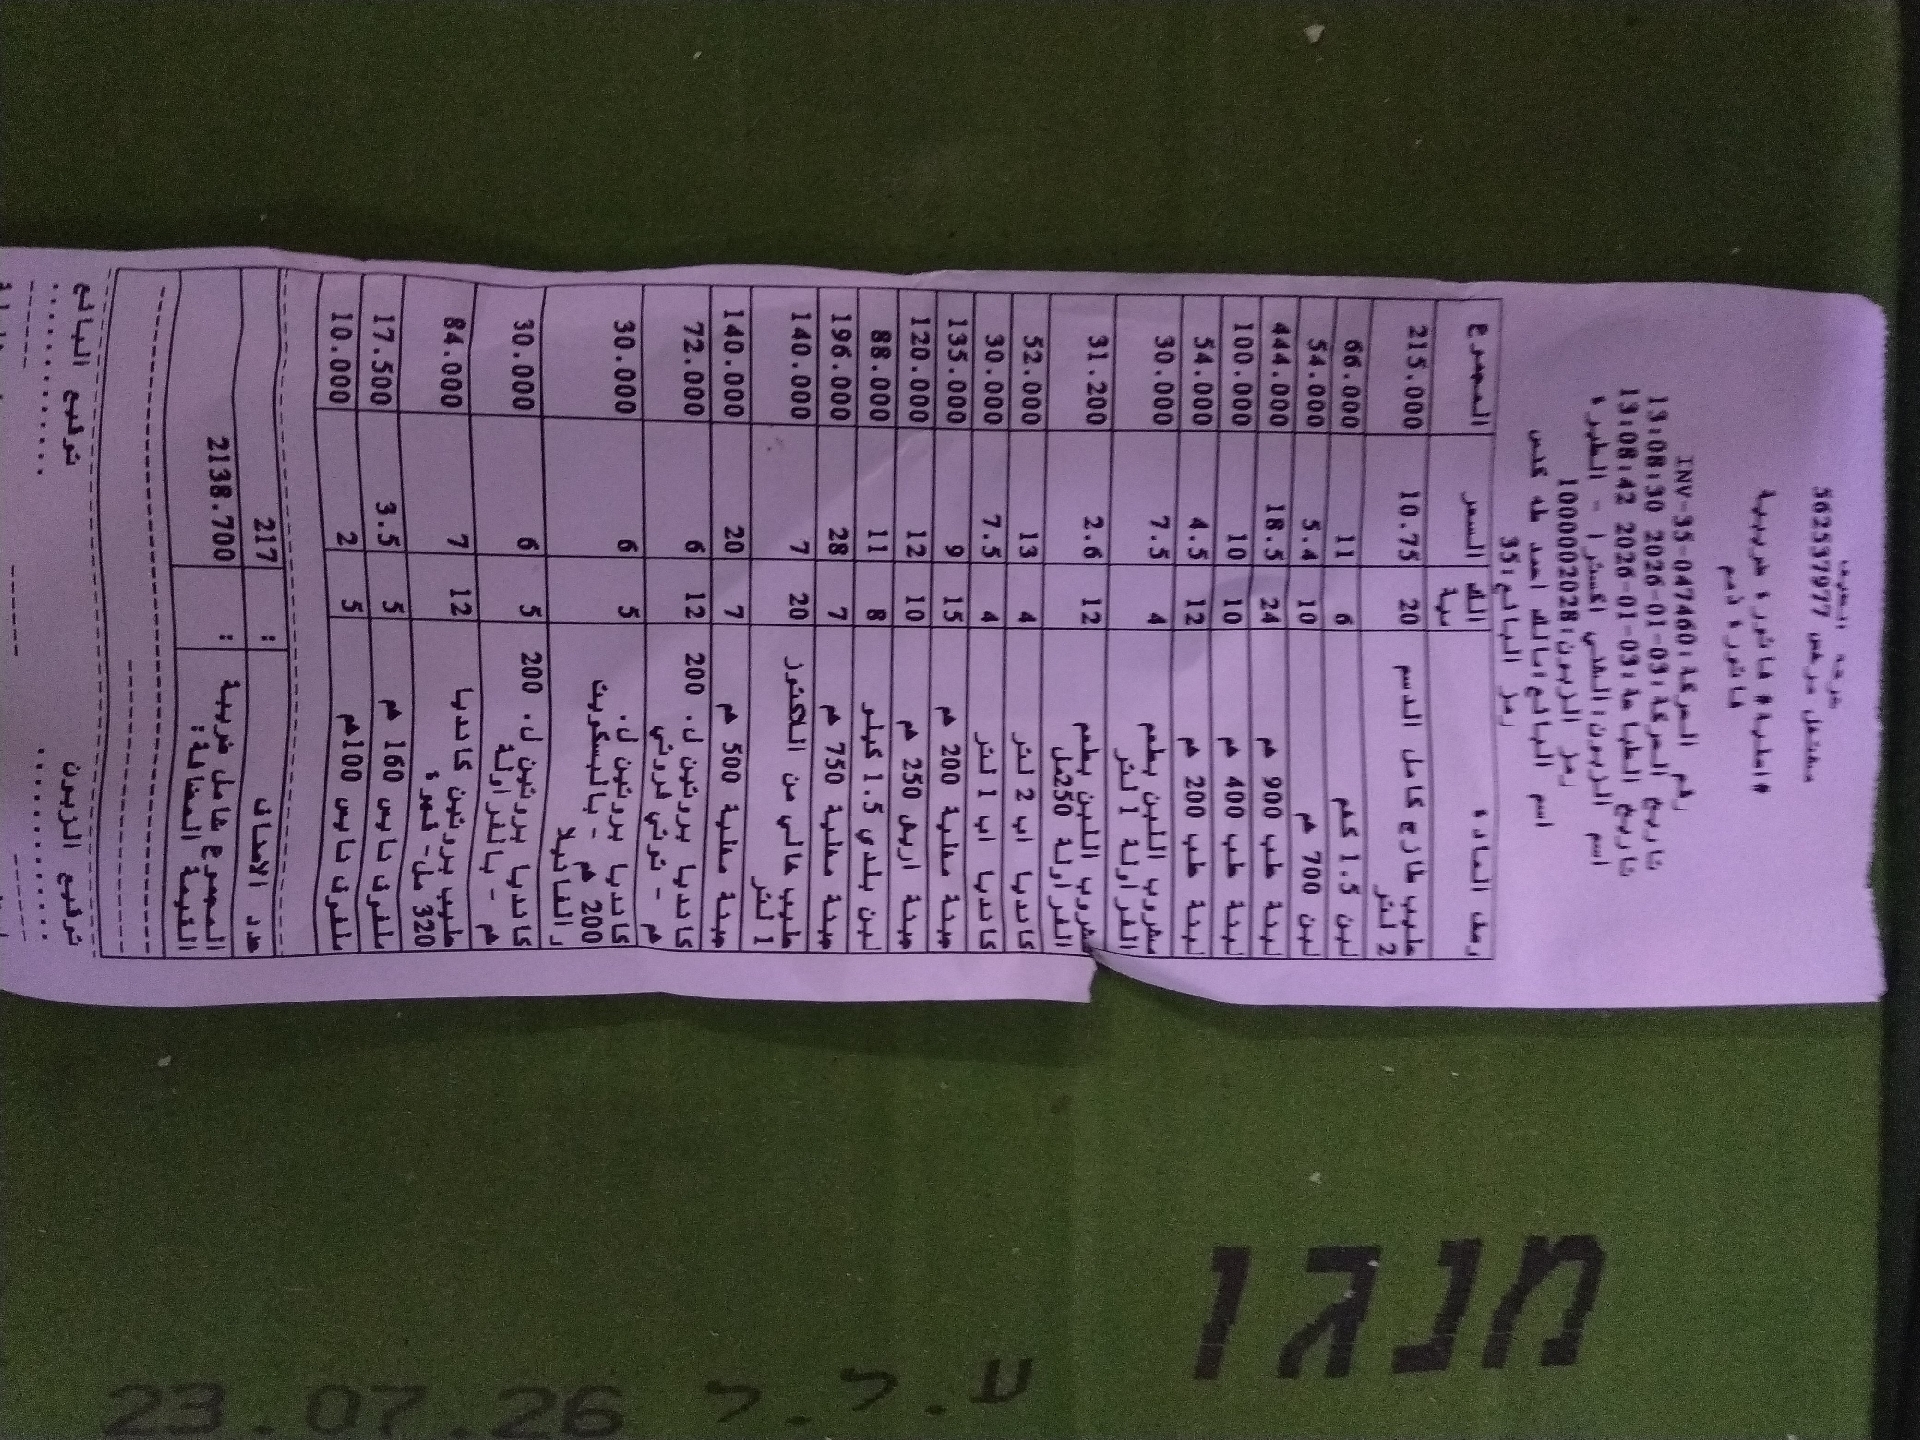 مشتغل مرخص 562537977
#اصلية# فاتورة ضريبية
فاتورة ذمم
رقم الحركة: INV-35-047460
تاريخ الحركة: 2026-01-03 13:08:30
تاريخ الطباعة: 2026-01-03 13:08:42
اسم الزبون: الغني اكسترا - الطيرة
رمز الزبون: 1000002028
اسم البائع: مالك احمد طه
رمز البائع: 35
وصف المادة الك السعر المجموع
مية
حليب طازج كامل الدسم 20 10.75 215.000
2 لتر
لبن 1.5 كغم 6 11 66.000
لبن 700 غم 10 5.4 54.000
لبنة طب 900 غم 24 18.5 444.000
لبنة طب 400 غم 10 10 100.000
لبنة طب 200 غم 12 4.5 54.000
مشروب اللبن بطعم 4 7.5 30.000
الفراولة 1 لتر
مشروب اللبن بطعم 12 2.6 31.200
الفراولة 250مل
كانديا اب 2 لتر 4 13 52.000
كانديا اب 1 لتر 4 7.5 30.000
جبنة مغلية 200 غم 15 9 135.000
جبنة 250 غم 10 12 120.000
لبن بلدي 1.5 كيلو 8 11 88.000
جبنة مغلية 750 غم 7 28 196.000
حليب خالي من اللاكتوز 20 7 140.000
1 لتر
جبنة مغلية 500 غم 7 20 140.000
كانديا بروتين ل. 200 12 6 72.000
غم - توتي فروتي
كانديا بروتين ل. 5 6 30.000
200 غم - بالبسكويت
والفانيلا
كانديا بروتين ل. 200 5 6 30.000
غم - بالفراولة
حليب بروتين كانديا 12 7 84.000
320 مل- قهوة
160 غم 5 3.5 17.500
100غم 5 2 10.000
عدد الاصناف : 217
المجموع شامل ضريبة : 2138.700
القيمة المضافة:
توقيع الزبون توقيع البائع
מנגו
23.07.26